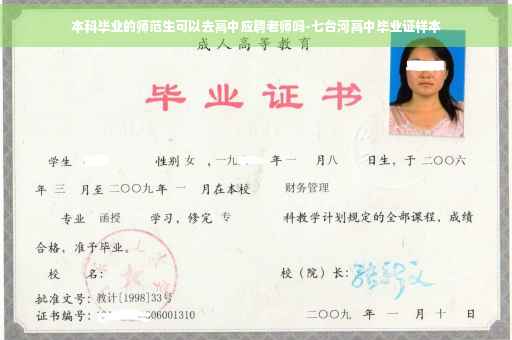 本科毕业的师范生可以去高中应聘老师吗-七台河高中毕业证样本
成人高等教育
毕业证书
学生 性别 女 ，一九 年 一 月 八 日生，于 二〇〇六
年 三 月至 二〇〇九 年 一 月在本校 财务管理
专业 函授 学习，修完 专 科教学计划规定的全部课程，成绩
合格，准予毕业。
校 名： 校（院）长：
批准文号：教计[1998]33号
证书编号： 06001310 二〇〇九 年 一 月 十 日